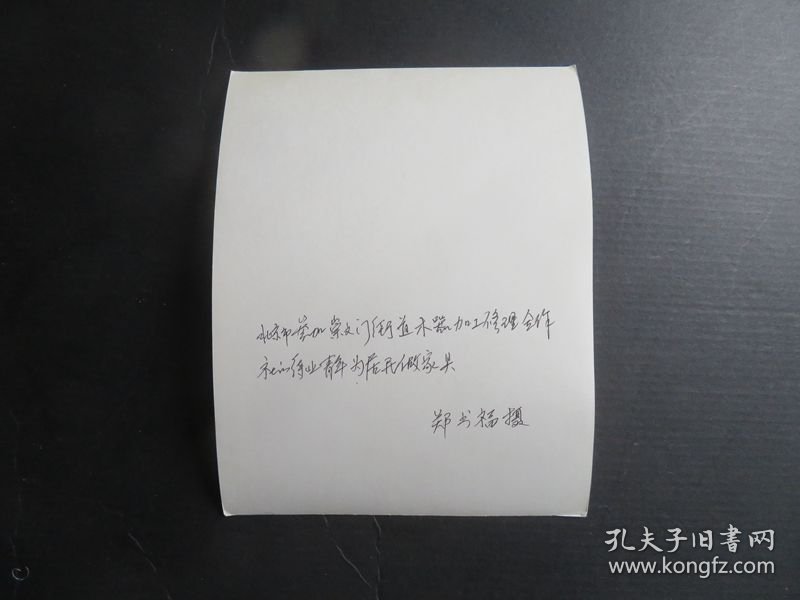 北京市参加崇文门街道木器加工修理合作
社的待业青年为居民做家具
郑书福摄
孔夫子旧书网
www.kongfz.com